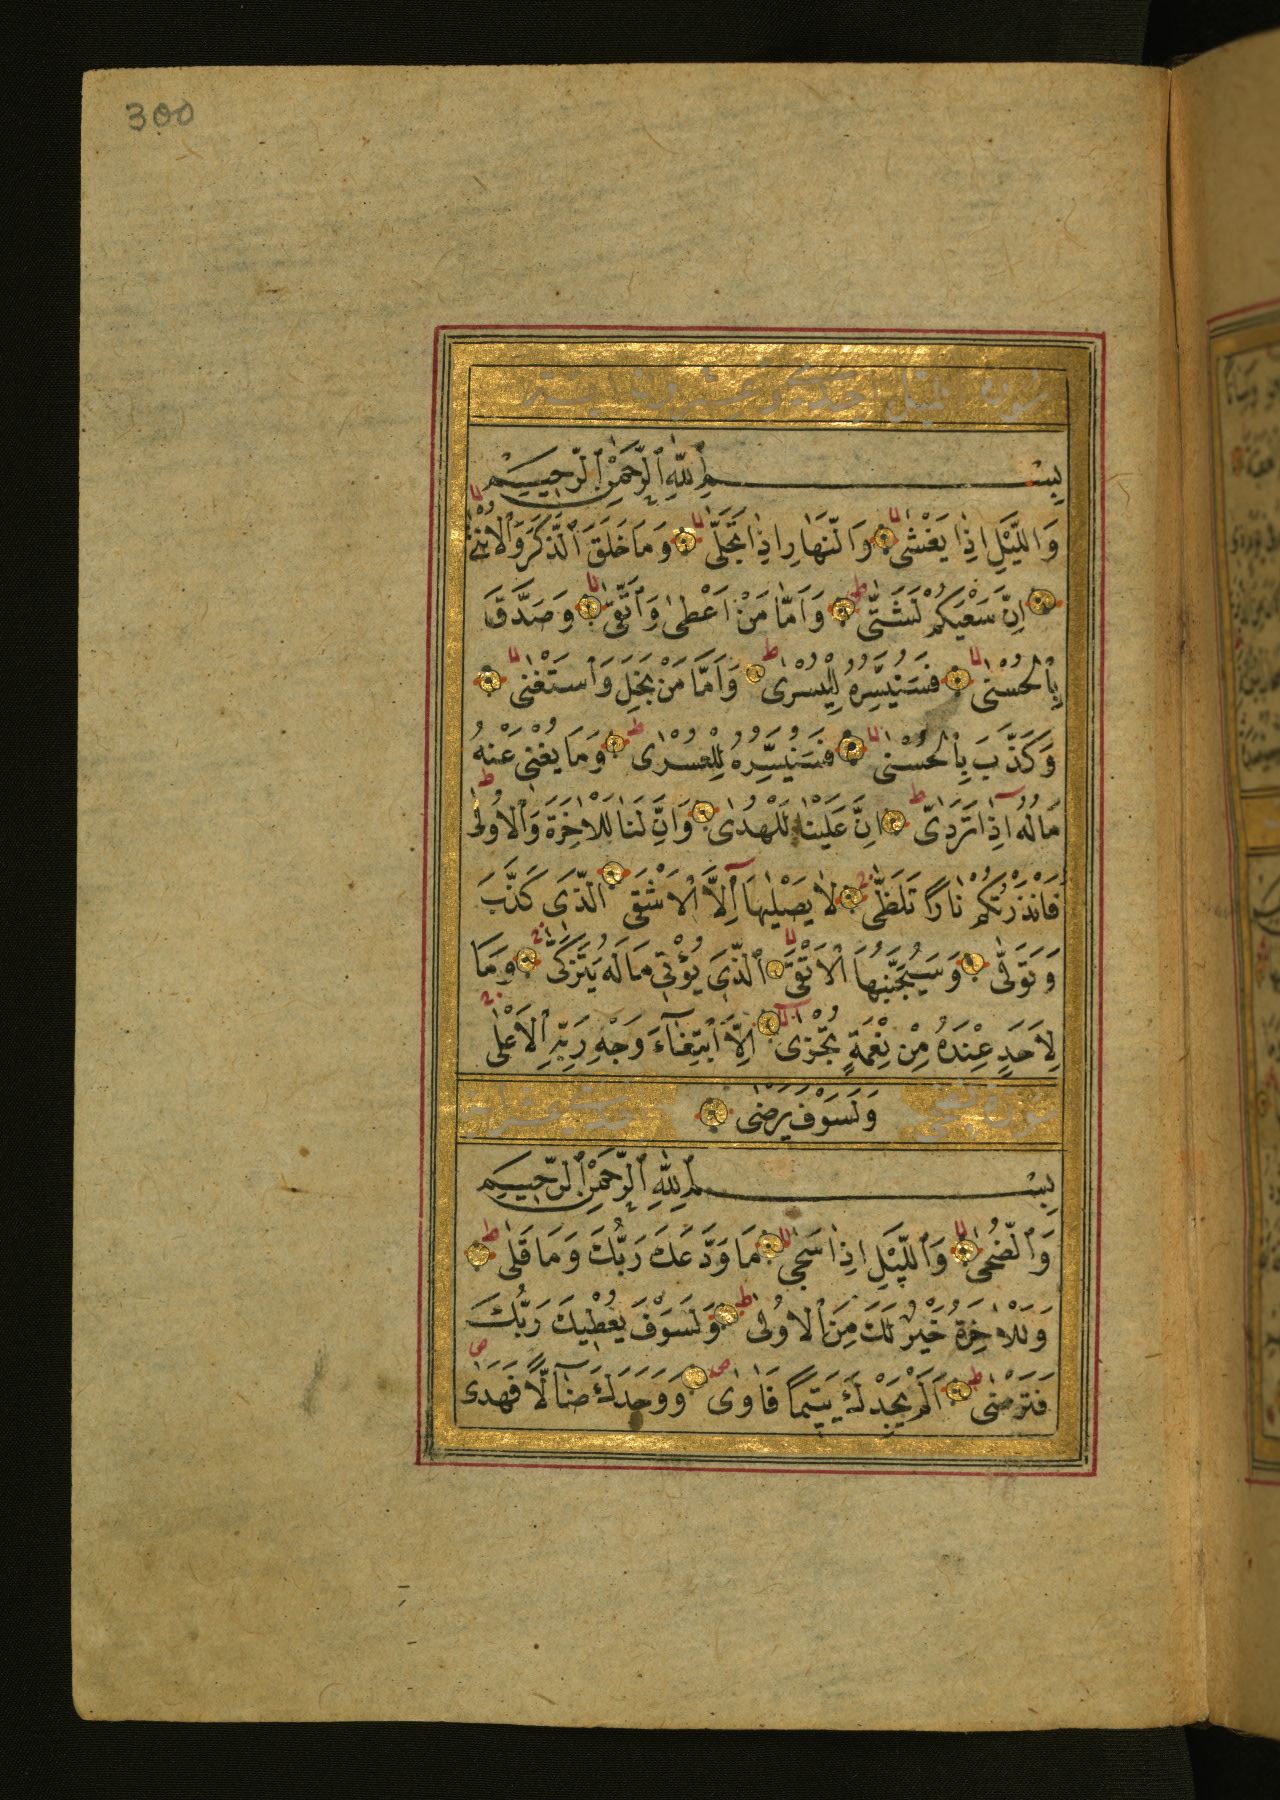 300
سورة الليل احدى وعشرون اية
بِسْمِ اللّٰهِ الرَّحْمٰنِ الرَّحِيمِ
وَاللَّيْلِ اِذَا يَغْشٰى وَالنَّهَارِ اِذَا تَجَلّٰى وَمَا خَلَقَ الذَّكَرَ وَالْاُنْثٰى
اِنَّ سَعْيَكُمْ لَشَتّٰى وَاَمَّا مَنْ اَعْطٰى وَاتَّقٰى وَصَدَّقَ
بِالْحُسْنٰى فَسَنُيَسِّرُهُ لِلْيُسْرٰى وَاَمَّا مَنْ بَخِلَ وَاسْتَغْنٰى
وَكَذَّبَ بِالْحُسْنٰى فَسَنُيَسِّرُهُ لِلْعُسْرٰى وَمَا يُغْنِى عَنْهُ
مَالُهُ اِذَا تَرَدّٰى اِنَّ عَلَيْنَا لَلْهُدٰى وَاِنَّ لَنَا لَلْاٰخِرَةَ وَالْاُولٰى
فَاَنْذَرْتُكُمْ نَارًا تَلَظّٰى لَا يَصْلٰيهَا اِلَّا الْاَشْقَى الَّذِى كَذَّبَ
وَتَوَلّٰى وَسَيُجَنَّبُهَا الْاَتْقَى الَّذِى يُؤْتِى مَالَهُ يَتَزَكّٰى وَمَا
لِاَحَدٍ عِنْدَهُ مِنْ نِعْمَةٍ تُجْزٰى اِلَّا ابْتِغَاءَ وَجْهِ رَبِّهِ الْاَعْلٰى
سورة الضحى وَلَسَوْفَ يَرْضٰى احدى عشر اية
بِسْمِ اللّٰهِ الرَّحْمٰنِ الرَّحِيمِ
وَالضُّحٰى وَاللَّيْلِ اِذَا سَجٰى مَا وَدَّعَكَ رَبُّكَ وَمَا قَلٰى
وَلَلْاٰخِرَةُ خَيْرٌ لَكَ مِنَ الْاُولٰى وَلَسَوْفَ يُعْطِيكَ رَبُّكَ
فَتَرْضٰى اَلَمْ يَجِدْكَ يَتِيمًا فَاٰوٰى وَوَجَدَكَ ضَالًّا فَهَدٰى